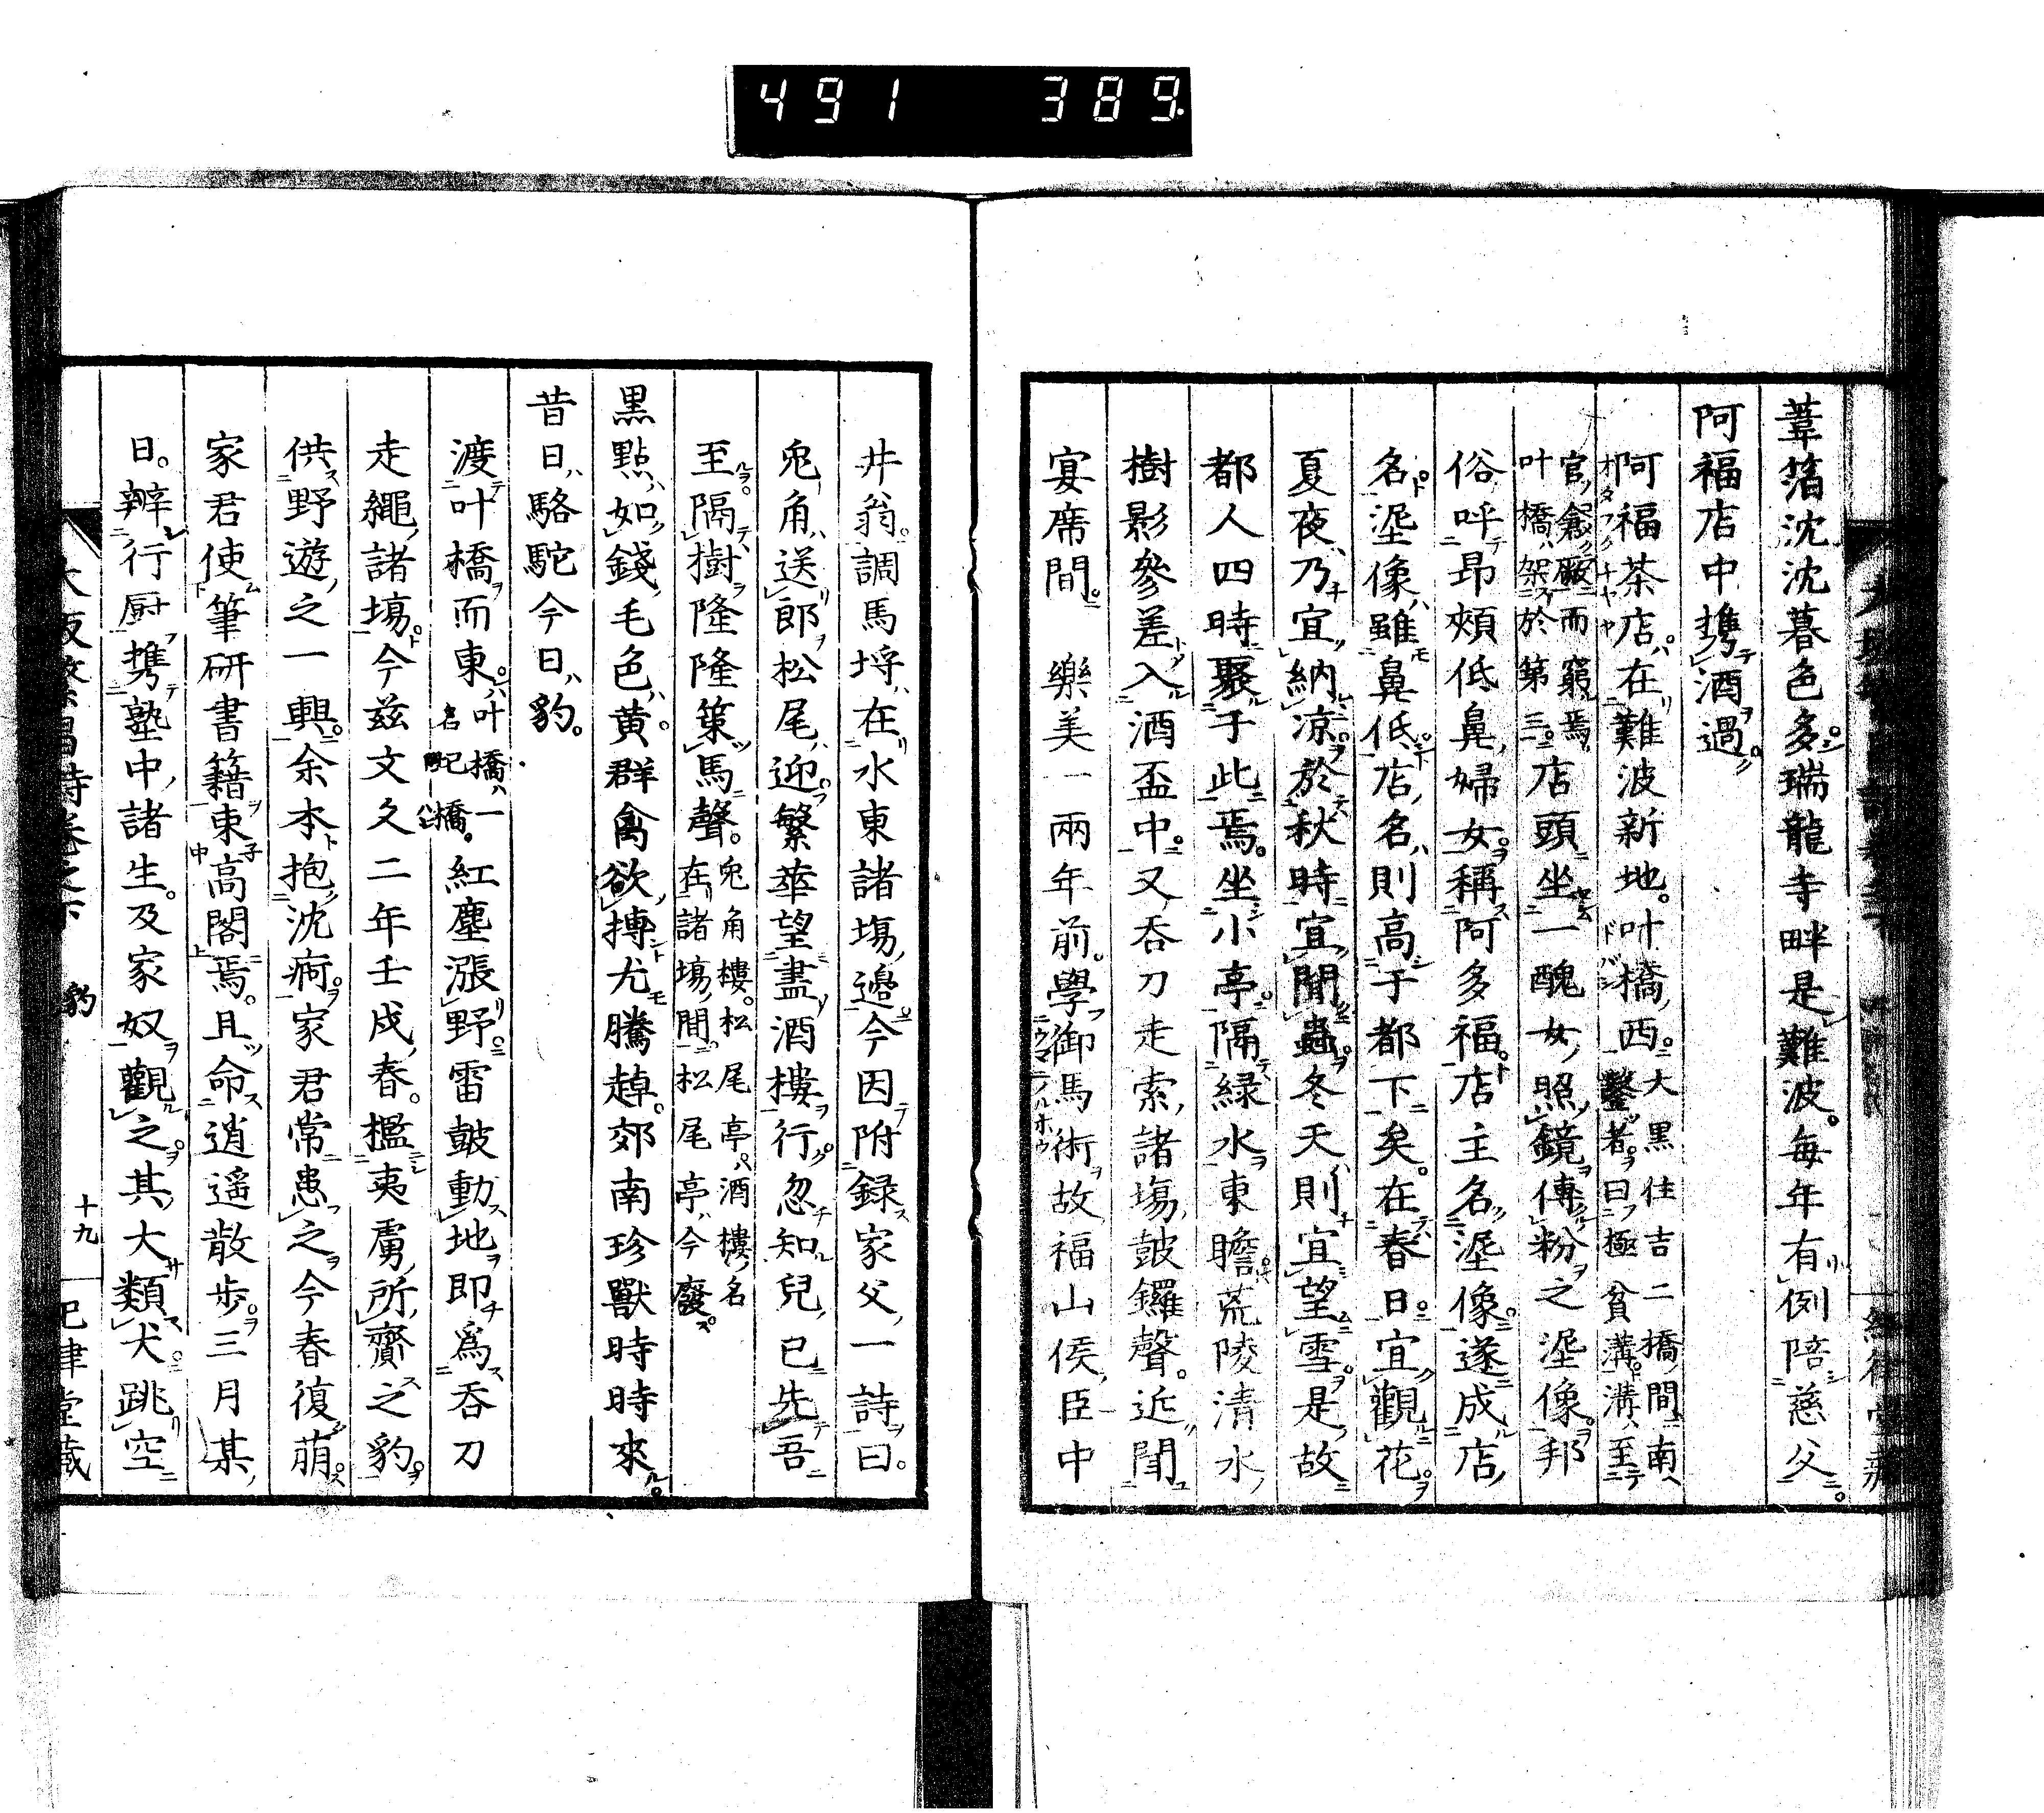 491 389
葦箔沈沈暮色多瑞龍寺畔是難波毎年有例陪慈父
阿福店中携酒過
阿福茶店在難波新地叶橋西大黒住吉二橋間南
鑿者曰極貧溝溝至
官倉廠而窮焉
叶橋架於第三店頭坐一醜女照鏡傳粉之埿像邦
俗呼昂頰低鼻婦女稱阿多福店主名埿像遂成店
名埿像雖鼻低店名則高于都下矣在春日宜觀花
夏夜乃宜納凉於秋時宜聞蟲冬天則宜望雪是故
都人四時聚于此焉坐小亭隔緑水東瞻荒陵清水
樹影參差入酒盃中又呑刀走索諸塲皷鑼聲近聞
宴席間 樂美一兩年前學御馬術故福山侯臣中
井翁調馬埒在水東諸塲邉今因附録家父一詩曰
兎角送郎松尾迎繁華望盡酒樓行忽知兒已先吾
至隔樹隆隆策馬聲兎角樓松尾亭酒樓名
在諸塲間松尾亭今廢
黒點如錢毛色黄群禽欲搏尤騰趠郊南珍獸時時來
昔日駱駝今日豹
渡叶橋而東叶橋一
名記橋紅塵漲野雷皷動地即爲呑刀
走繩諸塲今茲文久二年壬戌春檻夷虜所齎之豹
供野遊之一興余本抱沈痾家君常患之今春復萠
家君使筆研書籍東高閣焉且命逍遥散歩三月某
日辨行厨携塾中諸生及家奴觀之其大類犬跳空
大阪繁昌詩卷之下 豹 十九